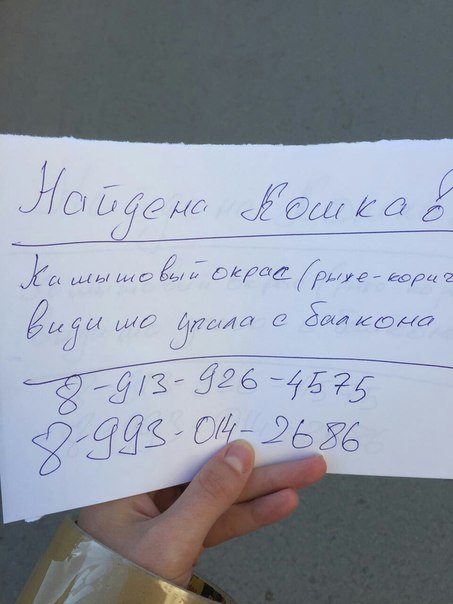 Найдена Кошка
Камышовый окрас (рыже-корич
видимо упала с балкона
8-913-926-4575
8-993-014-2686